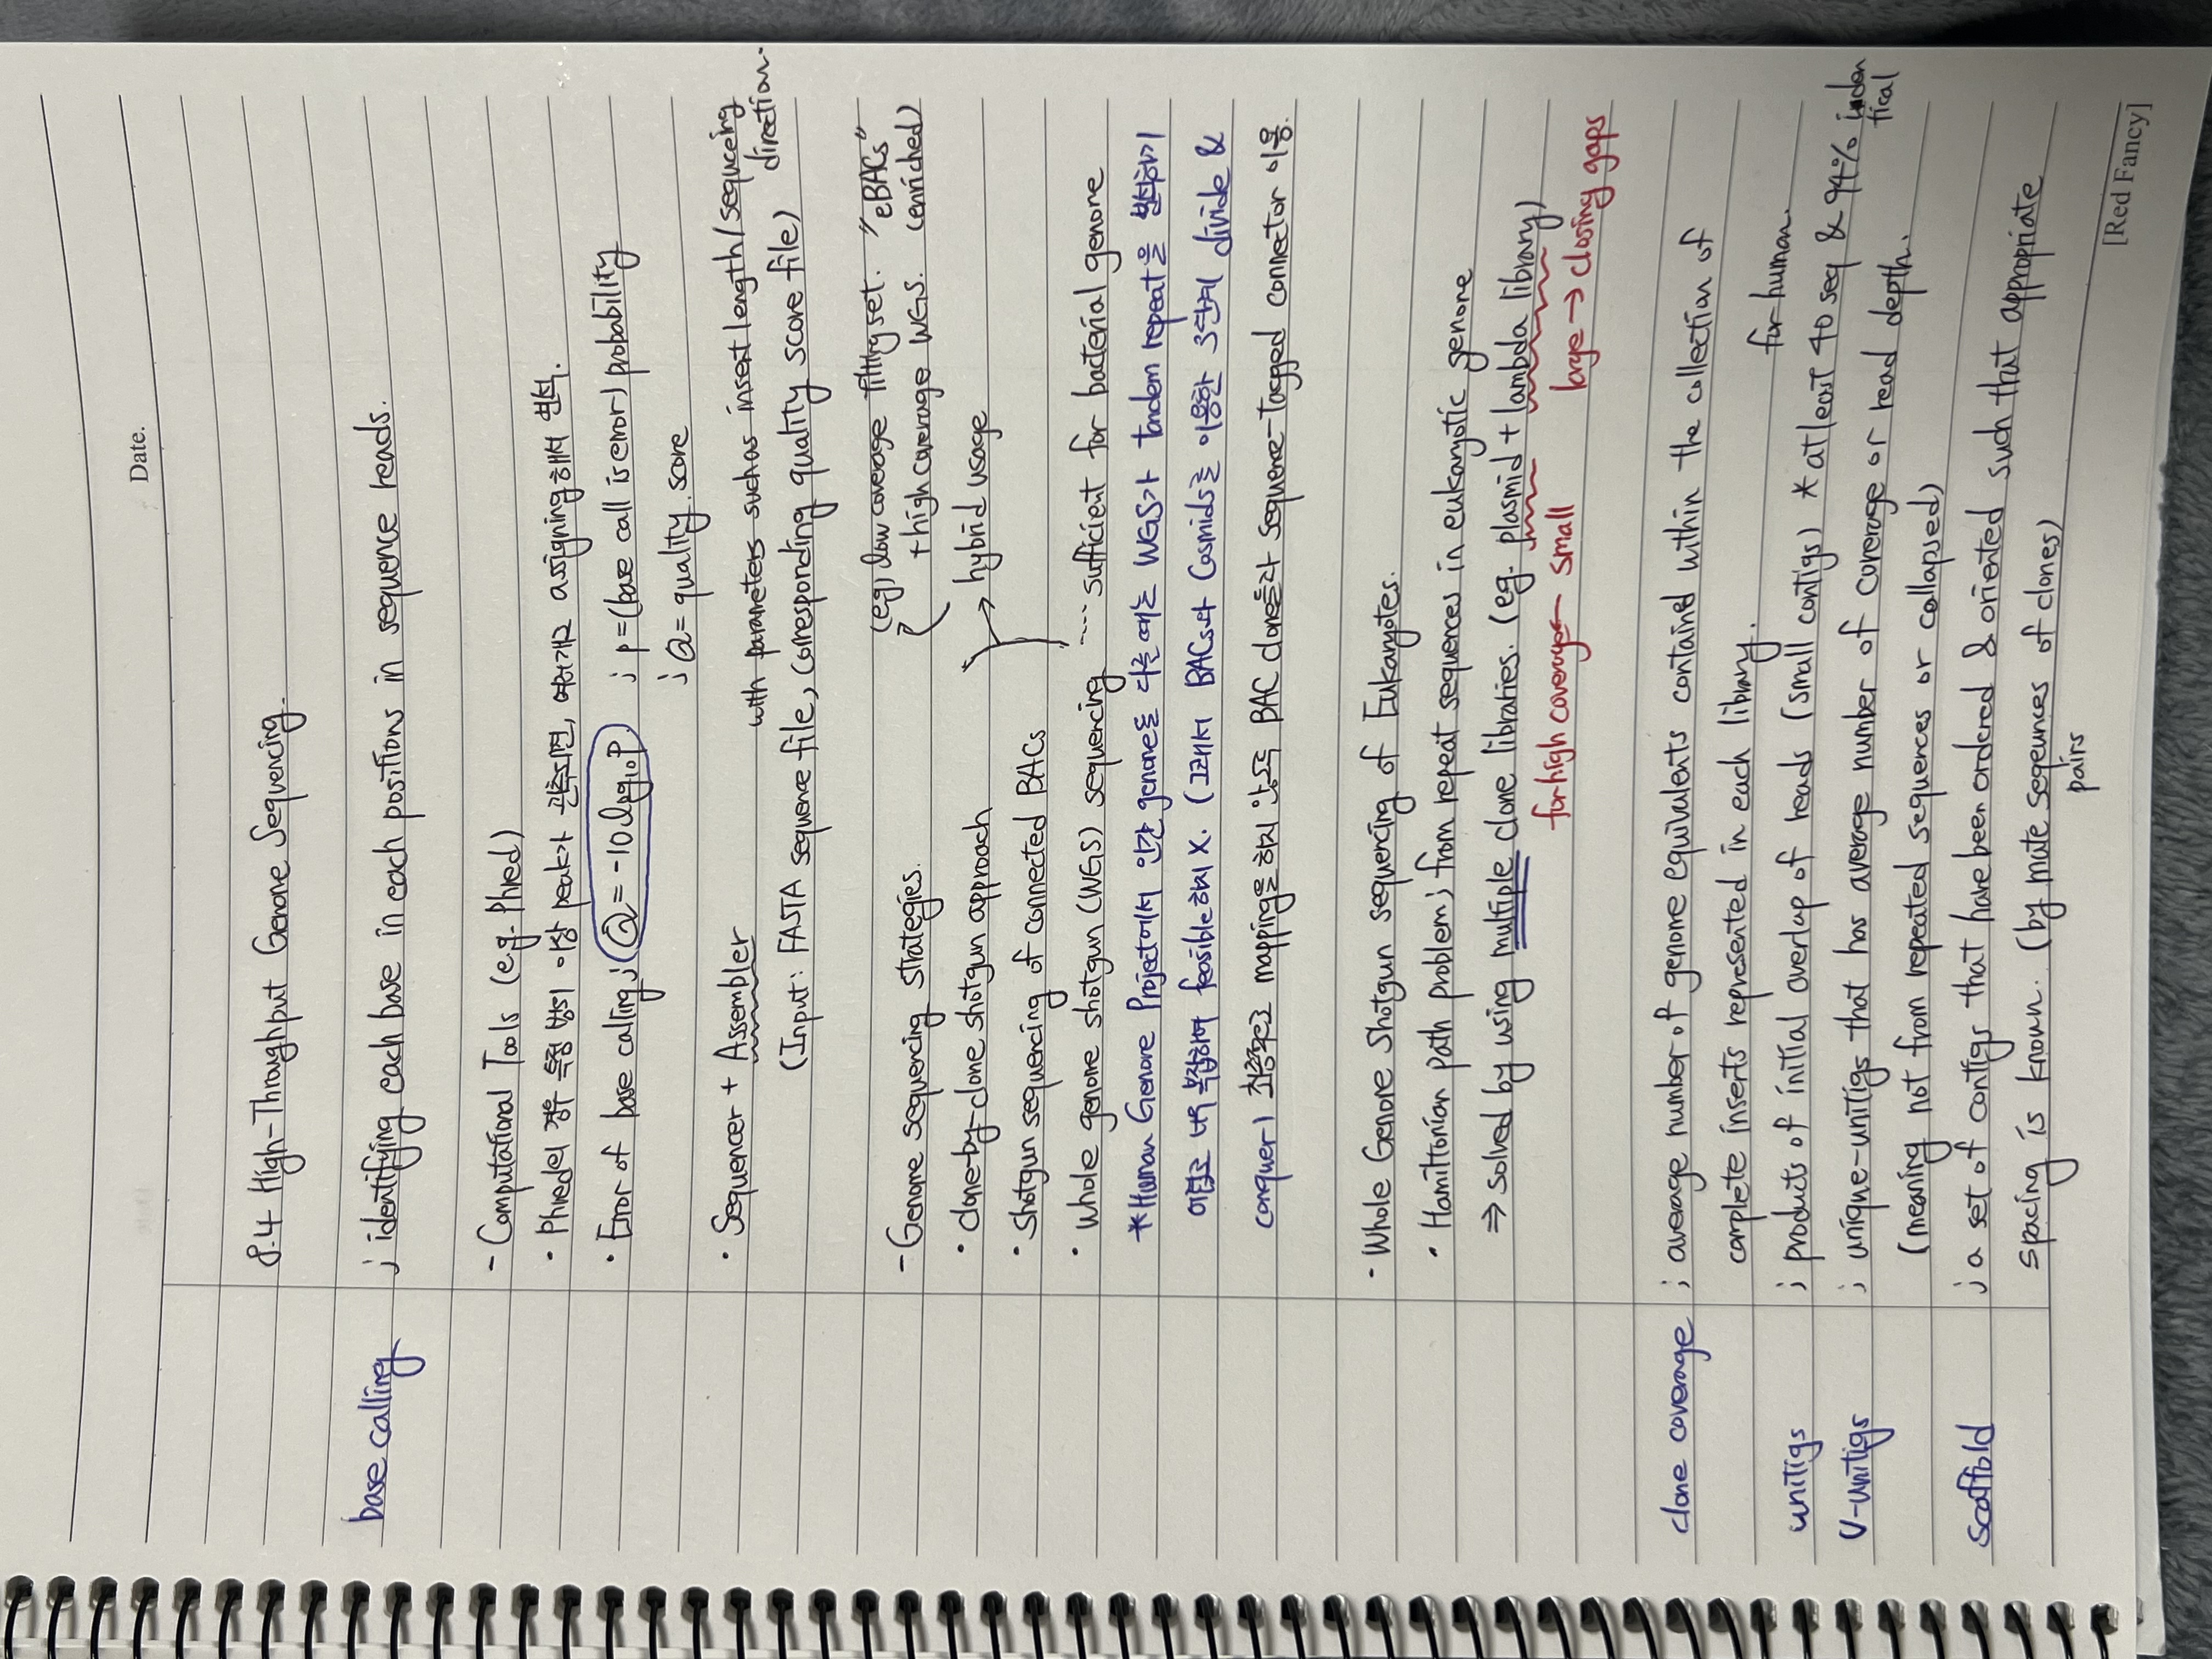 Date.
8.4 High-Throughput Genome Sequencing.
base calling ; identifying each base in each positions in sequence reads.
- Computational Tools (e.g. Phred)
• Phred의 경우 특정 범위 이상 peak가 관측되면, 여러개로 assigning해서 변석.
• Error of base calling ; Q = -10 log10 P ; p = (base call is error) probability
; Q = quality score
• Sequencer + Assembler with parameters such as insert length / sequceing direction
(Input : FASTA sequence file, corresponding quality score file)
- Genome sequencing strategies. (e.g., low coverage filting set. "eBACs"
• clone-by-clone shotgun approach + high coverage WGS. (enriched)
• Shotgun sequencing of connected BACs → hybrid usage
• whole genome shotgun (WGS) sequencing ---- sufficient for bacterial genome
*Human Genome Project에서 인간 genome을 다룰 때는 WGS가 tandem repeat을 밝히기
어렵고 너무 복잡하여 feasible하지 X. (그래서 BACs와 Cosmids를 이용한 3단계 divide &
conquer) 최종적으로 mapping을 하지 않은 BAC clone들과 sequence-tagged connector 이용.
- Whole Genome Shotgun sequencing of Eukaryotes.
• Hamiltonian path problem ; from repeat sequences in eukaryotic genome
⇒ solved by using multiple clone libraries. (e.g. plasmid + lambda library)
for high coverage ← small large → closing gaps
clone coverage ; average number of genome equivalents contained within the collection of
complete inserts represented in each library.
for human.
unitigs ; products of initial overlap of reads (small contigs) * at least 40 seq & 94% identical
U-unitigs ; unique-unitigs that has average number of coverage or read depth.
(meaning not from repeated sequences or collapsed)
scaffold ; a set of contigs that have been ordered & oriented such that appropriate
spacing is known. (by mate seqences of clones)
pairs
[Red Fancy]